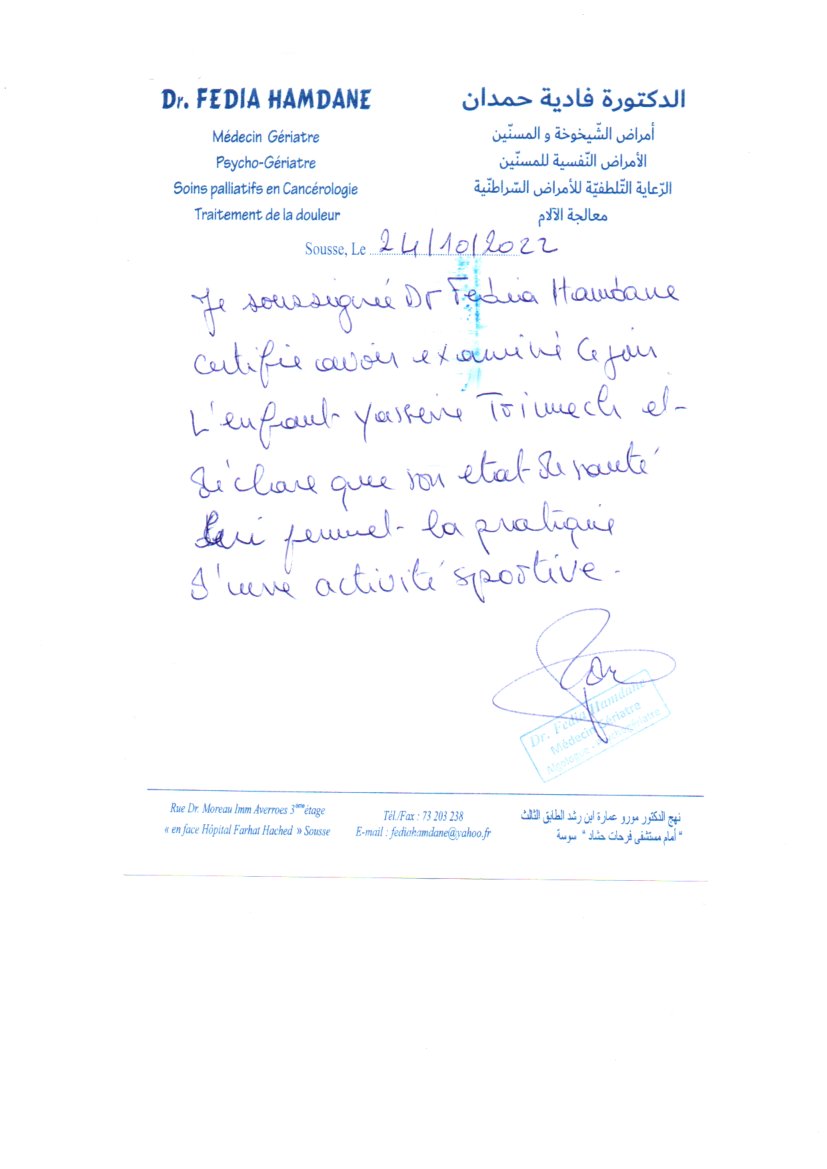 Dr. FEDIA HAMDANE
Médecin Gériatre
Psycho-Gériatre
Soins palliatifs en Cancérologie
Traitement de la douleur
الدكتورة فادية حمدان
أمراض الشّيخوخة و المسنّين
الأمراض النّفسية للمسنّين
الرّعاية التّلطفيّة للأمراض السّراطنّية
معالجة الآلام
Sousse, Le 24/10/2022
Je soussignée Dr Fedia Hamdane
certifie avoir examiné ce jour
L'enfant Yasseine Trimech et
déclare que son etat de santé
lui permet la pratique
d'une activité sportive.
Dr. Fedia Hamdane
Médecin Gériatre
Rue Dr. Moreau Imm Averroes 3ème étage
« en face Hôpital Farhat Hached » Sousse
Tél./Fax : 73 203 238
E-mail : fediahamdane@yahoo.fr
نهج الدكتور مورو عمارة ابن رشد الطابق الثالث
" أمام مستشفى فرحات حشاد " سوسة